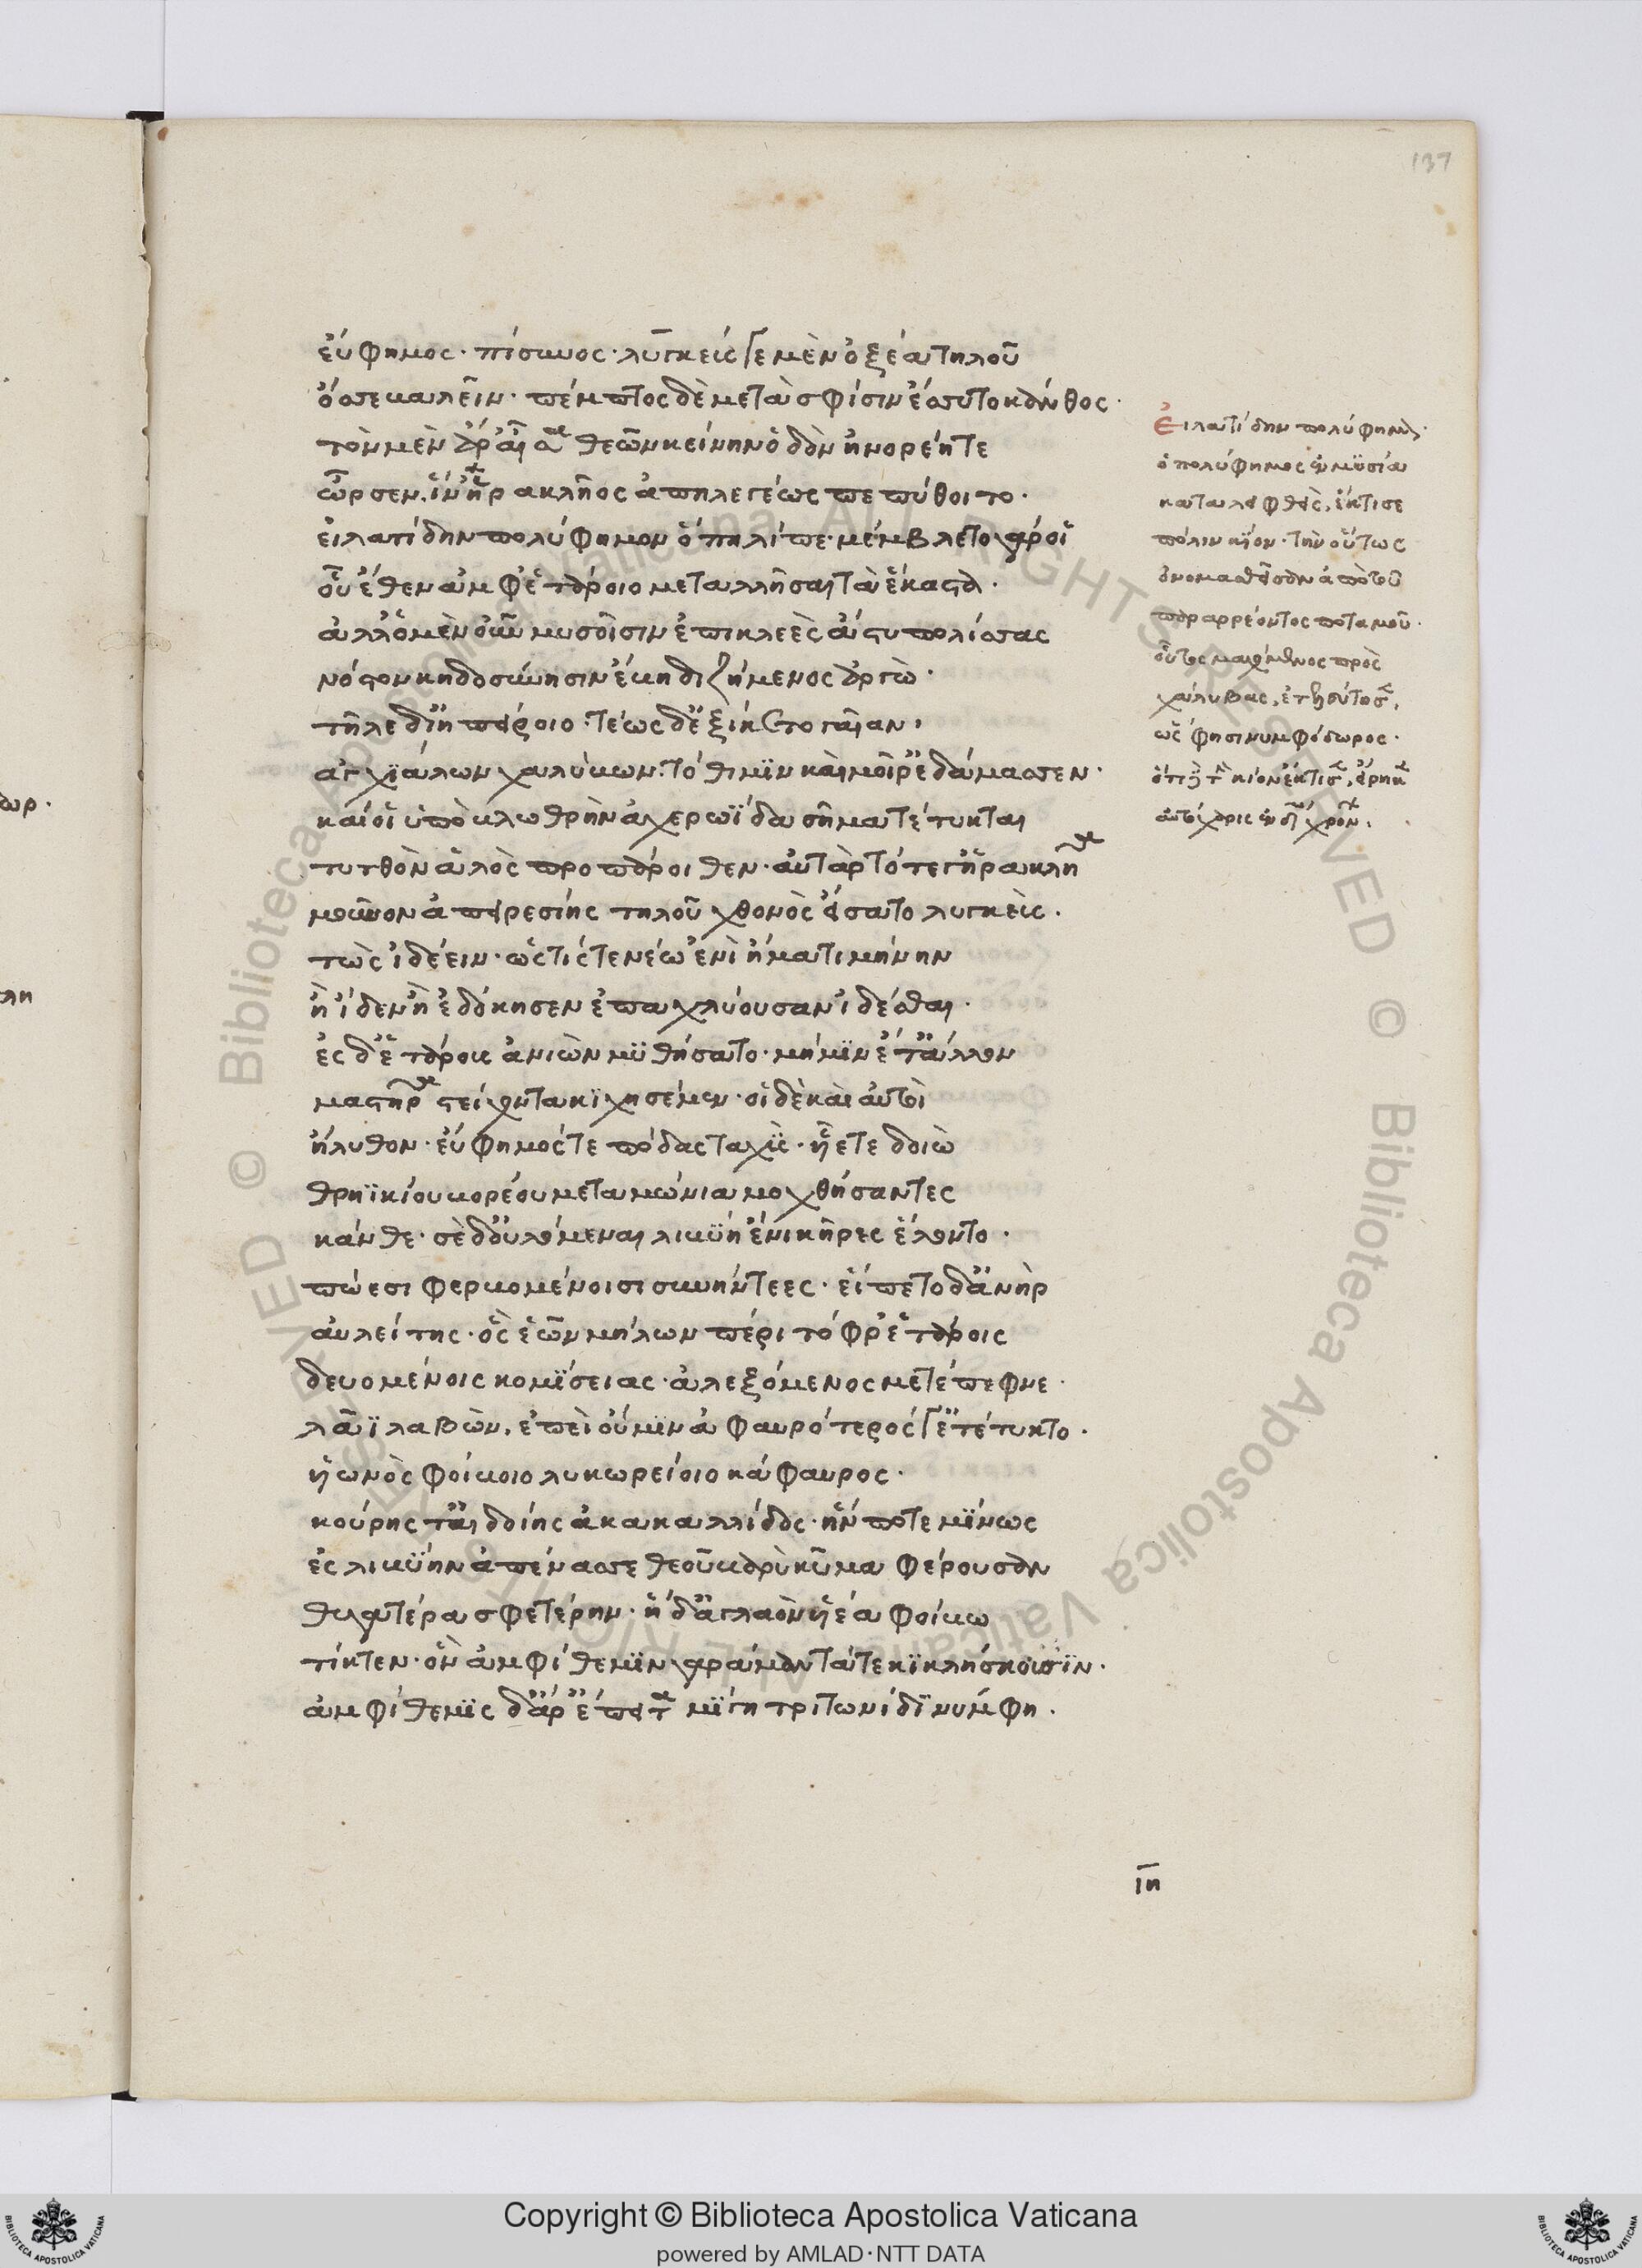 137
εὔφημος· πίσυνος· λυγκεύς γε μὲν ὀξέα τηλοῦ
ὄσσε βαλεῖν· πέμπτος δὲ μετὰ σφίσιν ἔσσυτο κάνθος·
τὸν μὲν ἄρ' αἶσα θεῶν κείνην ὁδὸν ἠνορέη τε
ὦρσεν, ἵν' ἡρακλῆος ἀπηλεγέως πεπύθοιτο·
εἰλατίδην πολύφημον ὅπη λίπε· μέμβλετο γάρ οἱ
οὗ ἕθεν ἀμφ' ἑτάροιο μεταλλῆσαι τὰ ἕκαστα·
ἀλλ' ὁ μὲν οὖν μυσοῖσιν ἐπικλεὲς ἄστυ πολίσσας
νόστου κηδοσύνησιν ἔβη διζήμενος ἀργὼ·
τῆλε δι' ἠπείροιο· τέως δ' ἐξίκετο γαῖαν,
ἀγχϊάλων χαλύβων· τόθι μϊν καὶ μοῖρ' ἐδάμασσεν·
καί οἱ ὑπὸ βλωθρὴν ἀχερωΐδα σῆμα τέτυκται
τυτθὸν ἁλὸς προπάροιθεν· αὐτὰρ τότε γ' ἡρακλῆα
μοῦνον ἀπειρεσίης τηλοῦ χθονὸς εἴσατο λυγκεὺς.
τὼς ἰδέειν· ὥς τίς τε νέω ἐνὶ ἤματι μήνην
ἢ ἴδεν ἢ ἐδόκησεν ἐπαχλύουσαν ἰδέσθαι·
ἐς δ' ἑτάρους ἀνιὼν μϋθήσατο· μή μϊν ἔτ' ἄλλον
μαστῆρα στείχοντα κϊχησέμεν· οἱ δὲ καὶ αὐτοὶ
ἤλυθον· εὔφημός τε πόδας ταχὺς· ἧε τε δοιὼ
θρηϊκίου βορέου μεταμώνια μοχθήσαντες
κάνθε· σὲ δ' οὐλόμεναι λιβύη ἔνι κῆρες ἕλοντο·
πώεσι φερβομένοισι συνήντεες· εἵπετο δ' ἀνὴρ
αὐλείτης· ὅς ἑῶν μήλων πέρι τόφρ' ἑτάροις
δευομένοις κομϊσειας· ἀλεξόμενος μετέπεφνε·
λᾶϊ λαβὼν, ἐπεὶ οὐ μϊν ἀφαυρότερός γε τέτυκτο·
ὑϊωνὸς φοίβοιο λυκωρείοιο κάφαυρος·
κούρης τ' αἰδοίης ἀκακαλλίδος· ἥν ποτε μϊνως
ἐς λιβύην ἀπένασσε θεοῦ βαρὺ κῦμα φέρουσαν
θυγατέρα σφετέρην· ἡ δ' ἀγλαὸν υἱέα φοίβω
τίκτεν· ὃν ἀμφίθεμϊν γαράμαντά τε κϊκλήσκουσϊν·
ἀμφίθεμϊς δ' ἄρ' ἔπειτα μϊγη τριτωνίδϊ νύμφη.
Ἐιλατίδην πολύφημον·
ὁ πολύφημος ἐν μϋσία
καταλειφθεὶς, ἔκτισε
πόλιν κίον· τὴν οὕτως
ὀνομασθεῖσαν ἀπὸ τοῦ
παραρρέοντος ποταμοῦ·
οὗτος μαχόμενος πρὸς
χάλυβας, ἐτελεύτησε,
ὥς φησι νυμφόδωρος·
ὅτι δὲ τὴν κίον ἔκτισε, εἴρηκε
αὐτόχαρις ἐν χρόνων.
ιη
Copyright © Biblioteca Apostolica Vaticana
powered by AMLAD·NTT DATA